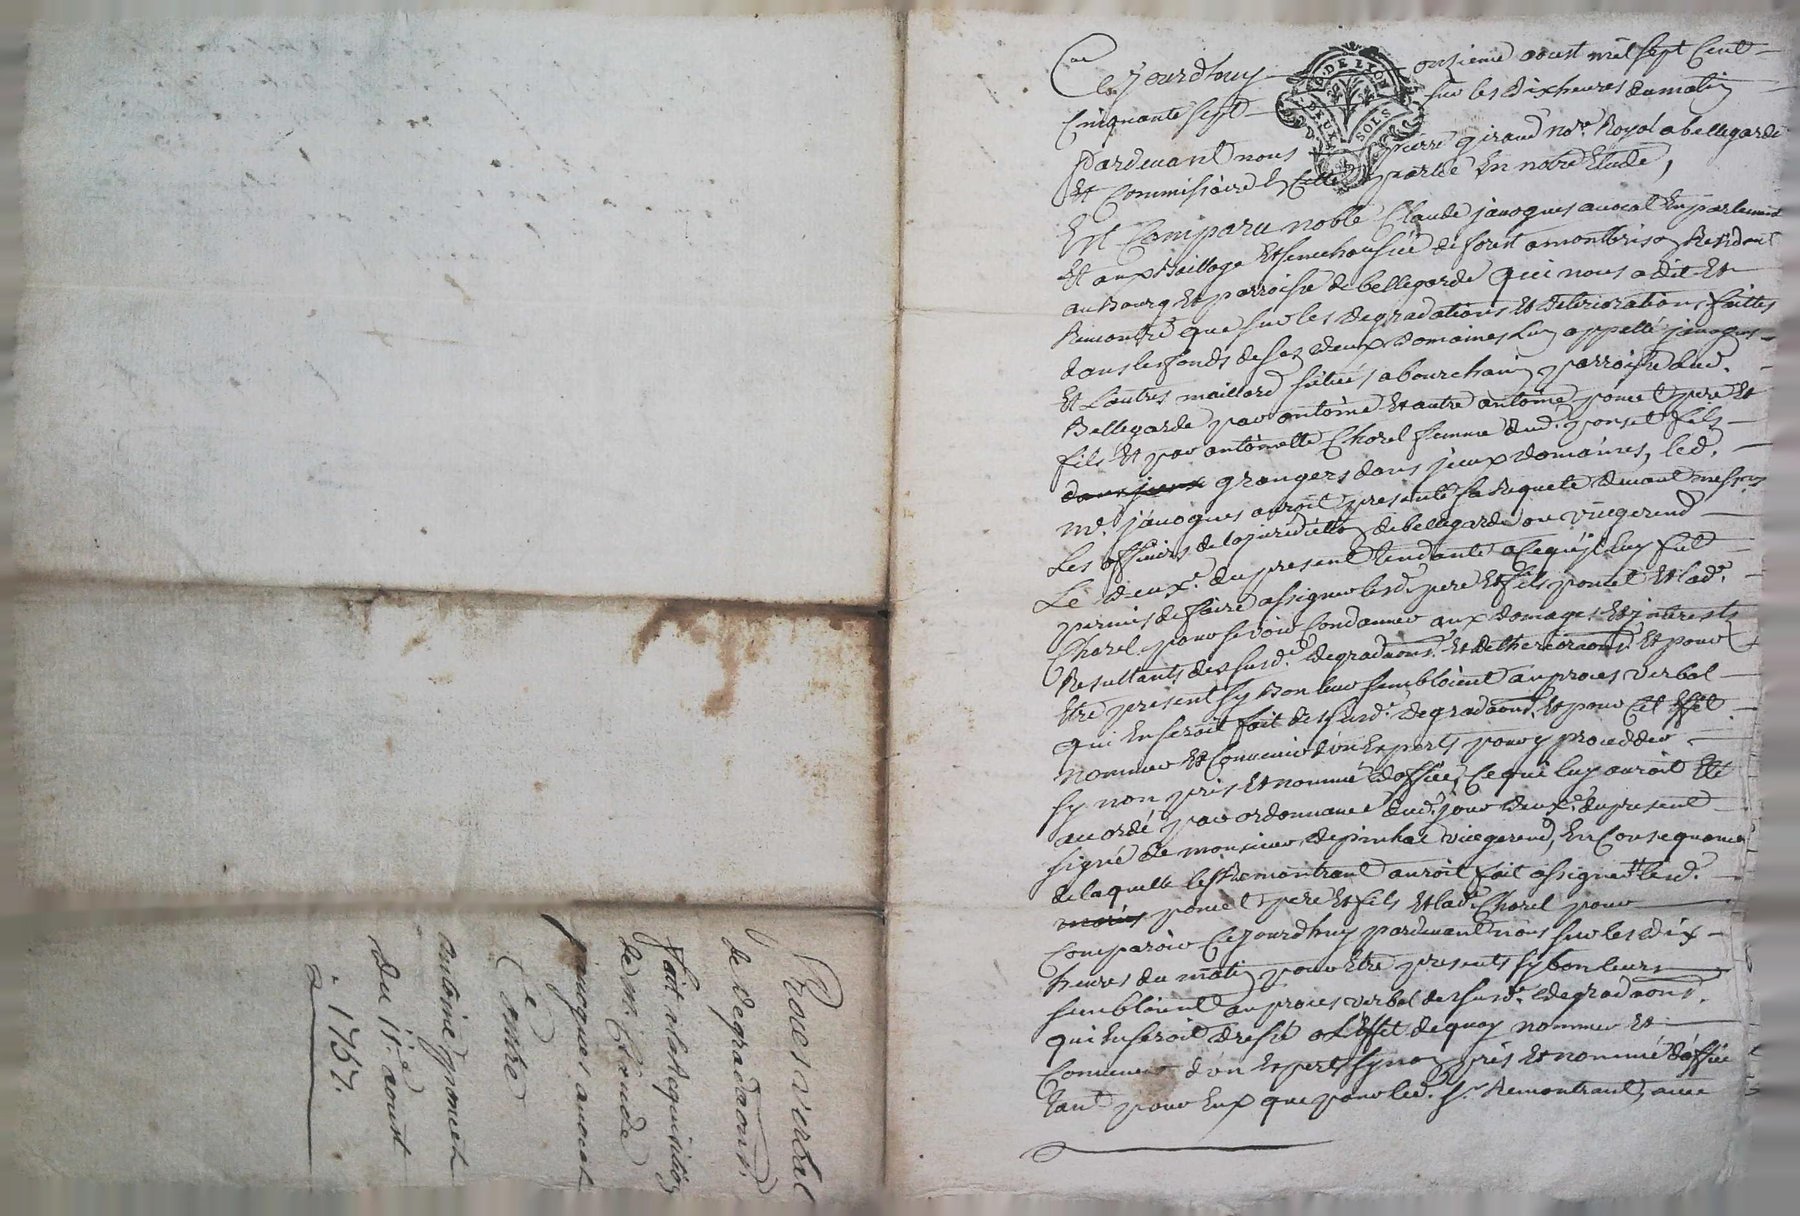 Procès verbal
de degradaons.
fait a la requisition
de mr. Claude
janoques avocat
Contre
antoine poncet
du 11.e aoust
1757.
GD. DE LYON
DEUX SOLS
Ce jourdhuy onsieme aoust mil sept Cent
Cinquante sept sur les dix heures du matin
pardevant nous pierre giraud no.re Royal a bellegarde
Et Commissaire En Cette partie En notre Etude,
Est Comparu noble Claude janoques avocat En parlement
Et aux Baillage Et senechaussée de forest a montbrison Residant
au Bourg Et parroisse de bellegarde qui nous a dit Et
Remontré que sur les degradations Et deteriorations faittes
dans les fonds de ses deux domaines L'un appellé janoques
Et L'autres maillard situés a bourchany parroisse dud.
Bellegarde par antoine Et autre antoine poncet pere Et
fils Et par antoinette Chorel femme dud. ponset fils
dans jceux grangers dans jceux domaines, led.
mr. janoques auroit presenté sa Requete devant messrs
Les officiers de la juridiction de bellegarde ou vicegerend
Le deux.e du present tendante a Ce qu'jl luy fut
permis de faire assigner lesd. pere Et fils poncet Et lad.
Chorel pour se voir Condamner aux domages Et jnterests
Resultants des susd. degradaons. Et detherioraons. Et pour
Etre present sy Bon leur sembloient au proces verbal
qui En seroit fait des susd. degradaons. Et pour Cet Effet
nommer Et Convenir d'un Experts pour y proceddер
sy non pris Et nommé d'office, Ce qui luy auroit Eté
accordé par ordonnance dud. jour deux.e du present
signé de monsieur depinhac vicegerend, En Consequance
de laquelle le sr Remontrant auroit fait assigner lesd.
mariés poncet pere Et fils Et lad. Chorel pour
Comparoir Ce jourdhuy pardevant nous sur les dix
heures du matin pour Etre presents sy bon leurs
sembloient au proces verbal des susd. degradaons.
qui En seroit dressé a L'Effet de quoy nommer Et
Convenir d'un Expert sy non pris Et nommé d'office
tant pour Eux que pour led. sr. Remontrant, avec